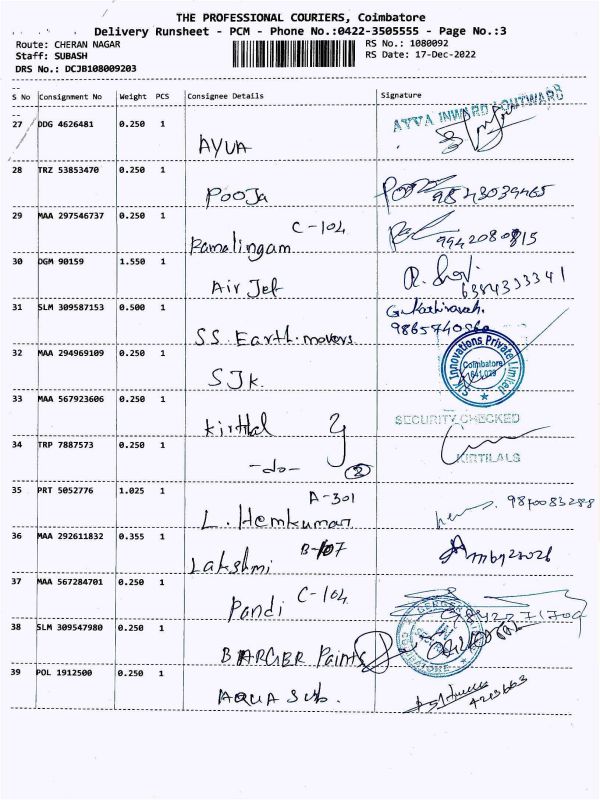 THE PROFESSIONAL COURIERS, Coimbatore
Delivery Runsheet - PCM - Phone No.:0422-3505555 - Page No.:3
Route: CHERAN NAGAR
RS No.: 1080092
Staff: SUBASH
RS Date: 17-Dec-2022
DRS No.: DCJB108009203
S No Consignment No Weight PCS Consignee Details Signature
27 DDG 4626481 0.250 1
AYVA INWARD / OUTWARD
AYVA
28 TRZ 53853470 0.250 1
POOJA
Pooja 9843039465
29 MAA 297546737 0.250 1
C-104
Ramalingam
9942080815
30 DGM 90159 1.550 1
Air Jet
6384333341
31 SLM 309587153 0.500 1
SS Earth.movers
G.Kathiravan.
32 MAA 294969109 0.250 1
SJK.
SJK Innovations Private Limited
Coimbatore
641 029
33 MAA 567923606 0.250 1
Kirthal
SECURITY CHECKED
34 TRP 7887573 0.250 1
-do-
2
KIRTILALS
35 PRT 5052776 1.025 1
A-301
L. Hemkumar
9870083288
36 MAA 292611832 0.355 1
B-107
Lakshmi
37 MAA 567284701 0.250 1
C-104
Pandi
38 SLM 309547980 0.250 1
BARGER Paints
COIMBATORE
39 POL 1912500 0.250 1
AQUA Sub.
4213663